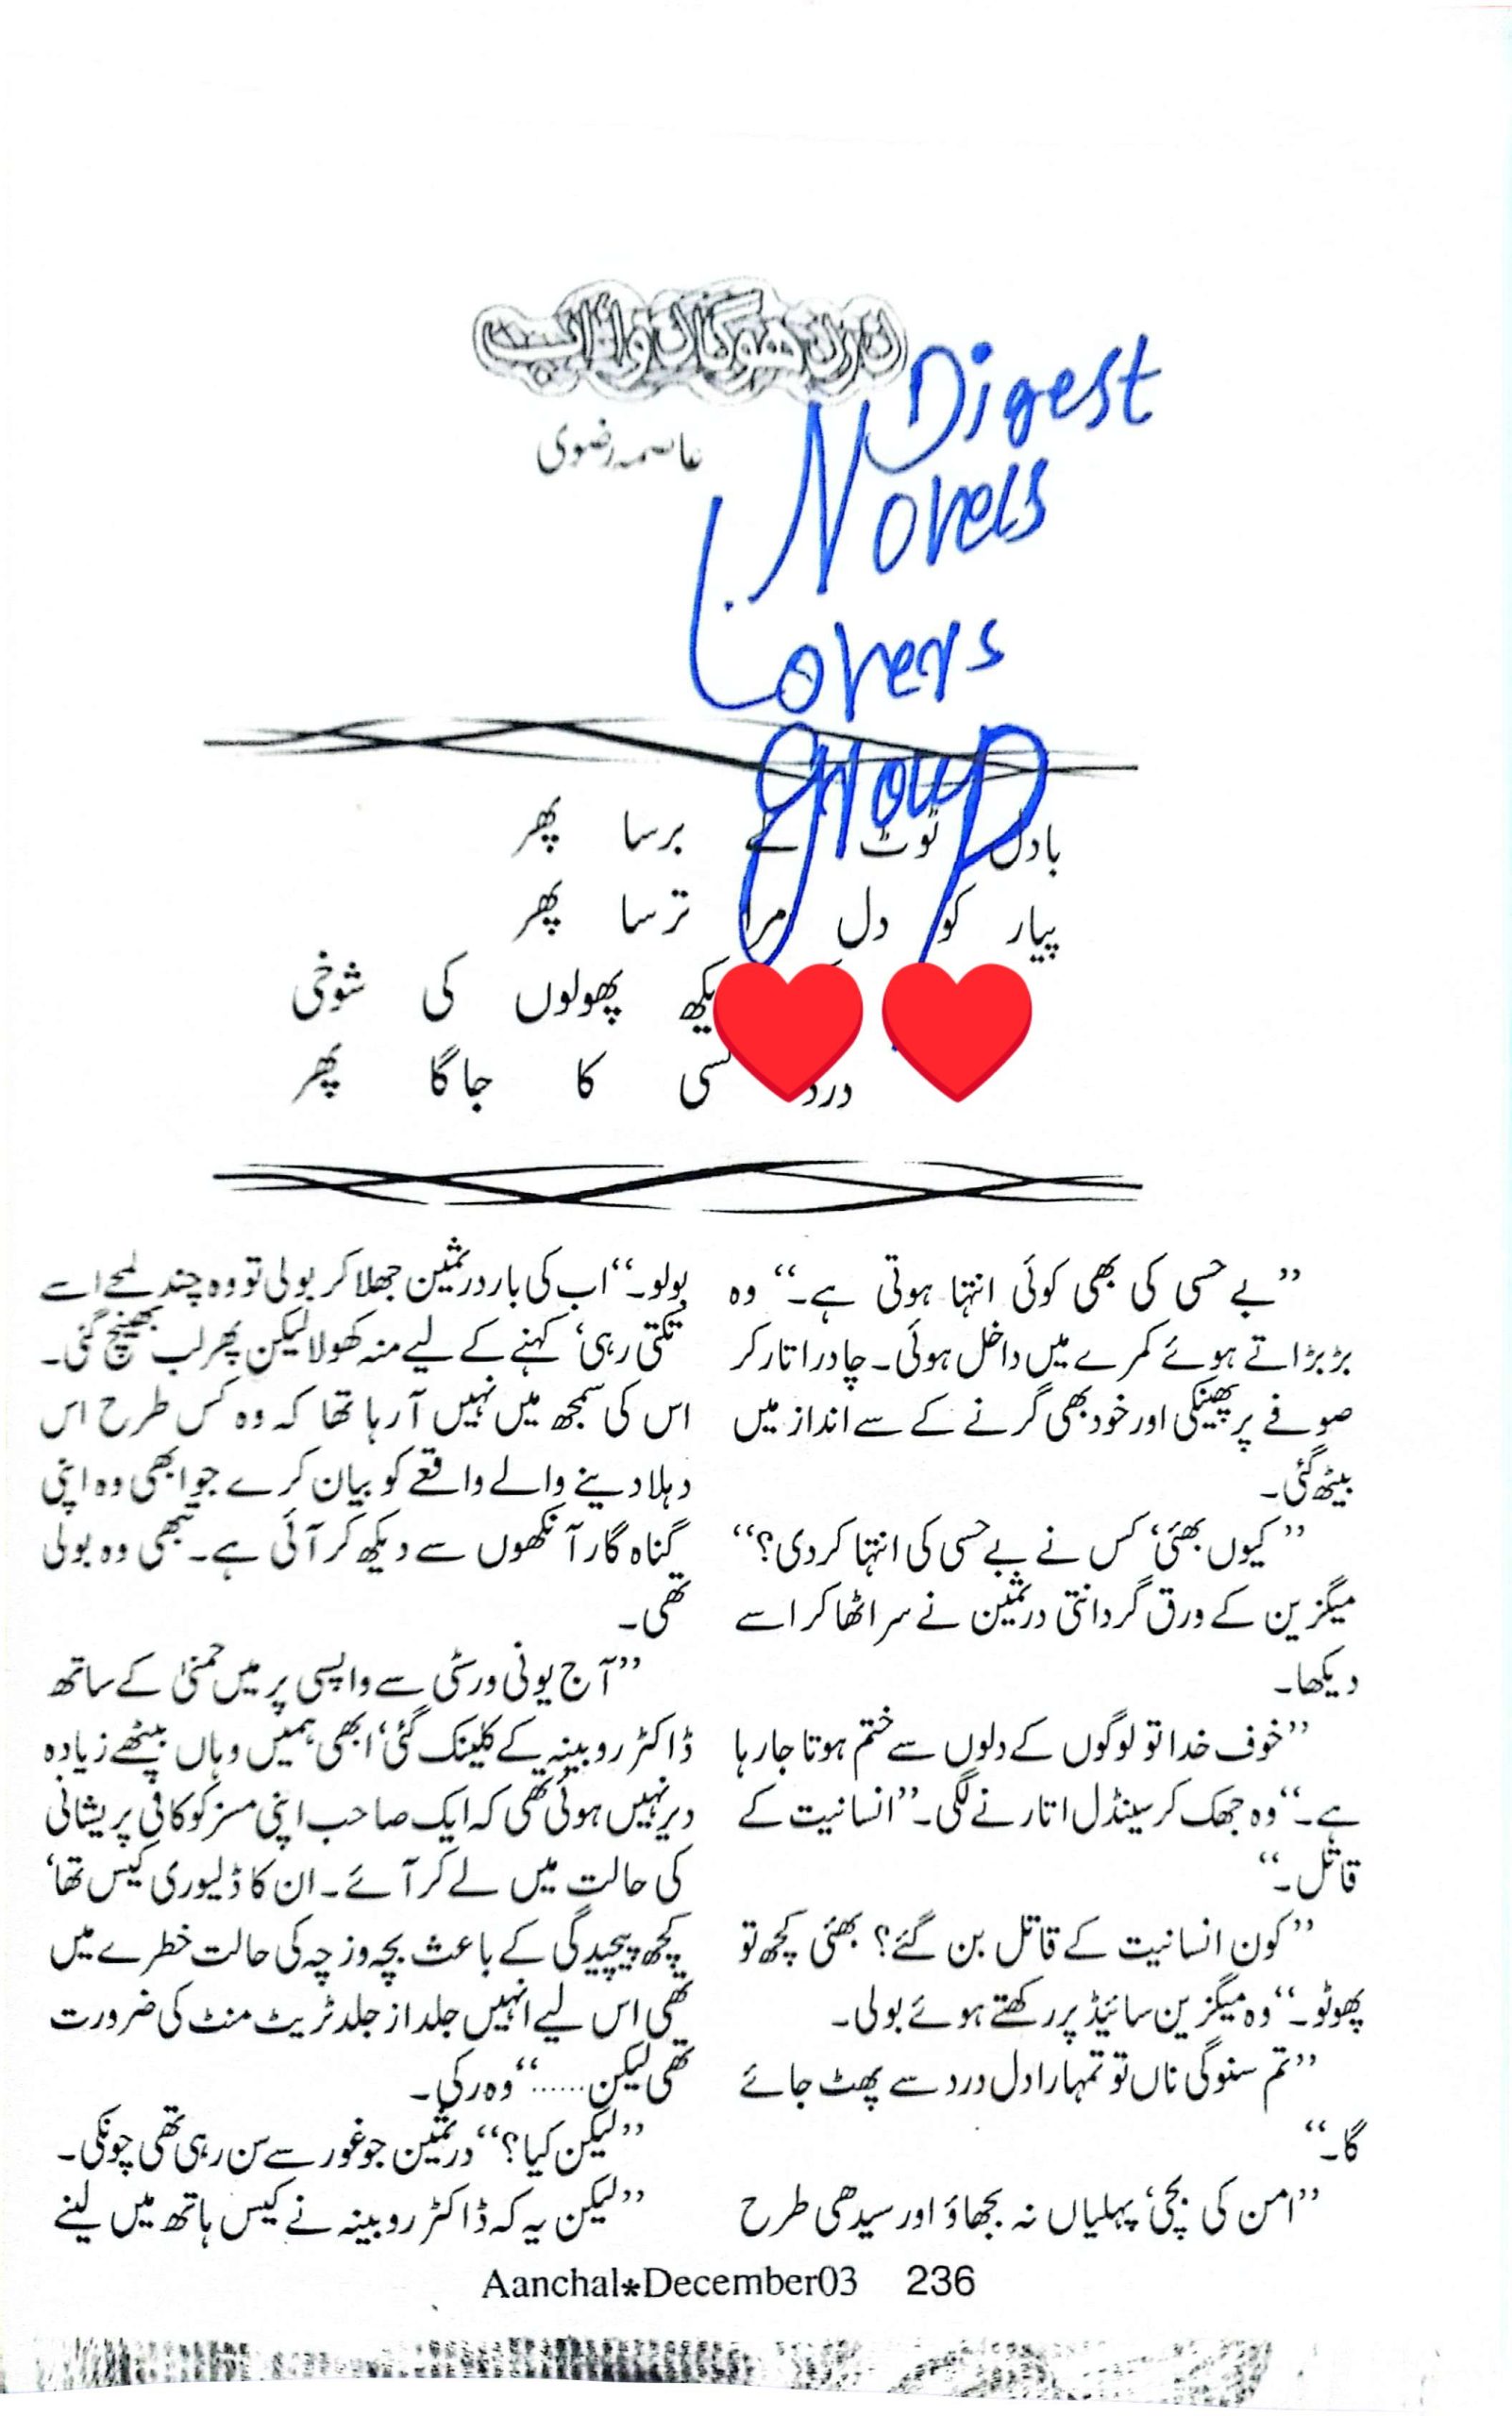 عاصمہ رضوی
Digest
Novels
Lovers
group
بادل ٹوٹ کے برسا پھر
پیار کو دل مرا ترسا پھر
پھولوں کی شوخی
درد کسی کا جاگا پھر
’’بے حسی کی بھی کوئی انتہا ہوتی ہے۔‘‘ وہ
بڑبڑاتے ہوئے کمرے میں داخل ہوئی۔ چادر اتار کر
صوفے پر پھینکی اور خود بھی گرنے کے سے انداز میں
بیٹھ گئی۔
’’کیوں بھئی‘ کس نے بے حسی کی انتہا کردی؟‘‘
میگزین کے ورق گردانتی درثمین نے سر اٹھا کر اسے
دیکھا۔
’’خوف خدا تو لوگوں کے دلوں سے ختم ہوتا جارہا
ہے۔‘‘ وہ جھک کر سینڈل اتارنے لگی۔ ’’انسانیت کے
قاتل۔‘‘
’’کون انسانیت کے قاتل بن گئے؟ بھئی کچھ تو
پھوٹو۔‘‘ وہ میگزین سائیڈ پر رکھتے ہوئے بولی۔
’’تم سنوگی ناں تو تمہارا دل درد سے پھٹ جائے
گا۔‘‘
’’امن کی بچی‘ پہلیاں نہ بجھاؤ اور سیدھی طرح
بولو۔‘‘ اب کی بار درثمین جھلا کر بولی تو وہ چند لمحے اسے
تکتی رہی‘ کہنے کے لیے منہ کھولا لیکن پھر لب بھینچ گئی۔
اس کی سمجھ میں نہیں آرہا تھا کہ وہ کس طرح اس
دہلا دینے والے واقعے کو بیان کرے جو ابھی وہ اپنی
گناہ گار آنکھوں سے دیکھ کر آئی ہے۔ تبھی وہ بولی
تھی۔
’’آج یونی ورسٹی سے واپسی پر میں حمنیٰ کے ساتھ
ڈاکٹر روبینہ کے کلینک گئی‘ ابھی ہمیں وہاں بیٹھے زیادہ
دیر نہیں ہوئی تھی کہ ایک صاحب اپنی مسز کو کافی پریشانی
کی حالت میں لے کر آئے۔ ان کا ڈلیوری کیس تھا‘
کچھ پیچیدگی کے باعث بچہ و زچہ کی حالت خطرے میں
تھی اس لیے انہیں جلد از جلد ٹریٹ منٹ کی ضرورت
تھی لیکن......‘‘ وہ رکی۔
’’لیکن کیا؟‘‘ درثمین جو غور سے سن رہی تھی چونکی۔
’’لیکن یہ کہ ڈاکٹر روبینہ نے کیس ہاتھ میں لینے
Aanchal*December03 236